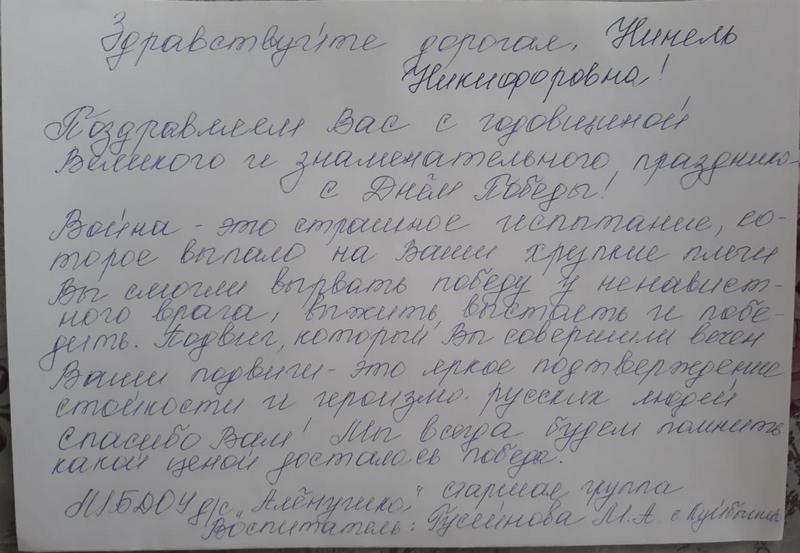 Здравствуйте дорогая, Нинель
Никифоровна!
Поздравляем Вас с годовщиной
Великого и знаменательного праздника-
с Днём Победы!
Война - это страшное испытание, ко-
торое выпало на Ваши хрупкие плечи
Вы смогли вырвать победу у ненавист-
ного врага, выжить, выстоять и побе-
дить. Подвиг, который Вы совершили вечен
Ваши подвиги - это яркое подтверждение
стойкости и героизма русских людей
Спасибо Вам! Мы всегда будем помнить
какой ценой досталась победа.
МБДОУ д/с "Алёнушка" старшая группа
Воспитатель: Гусейнова М.А. с